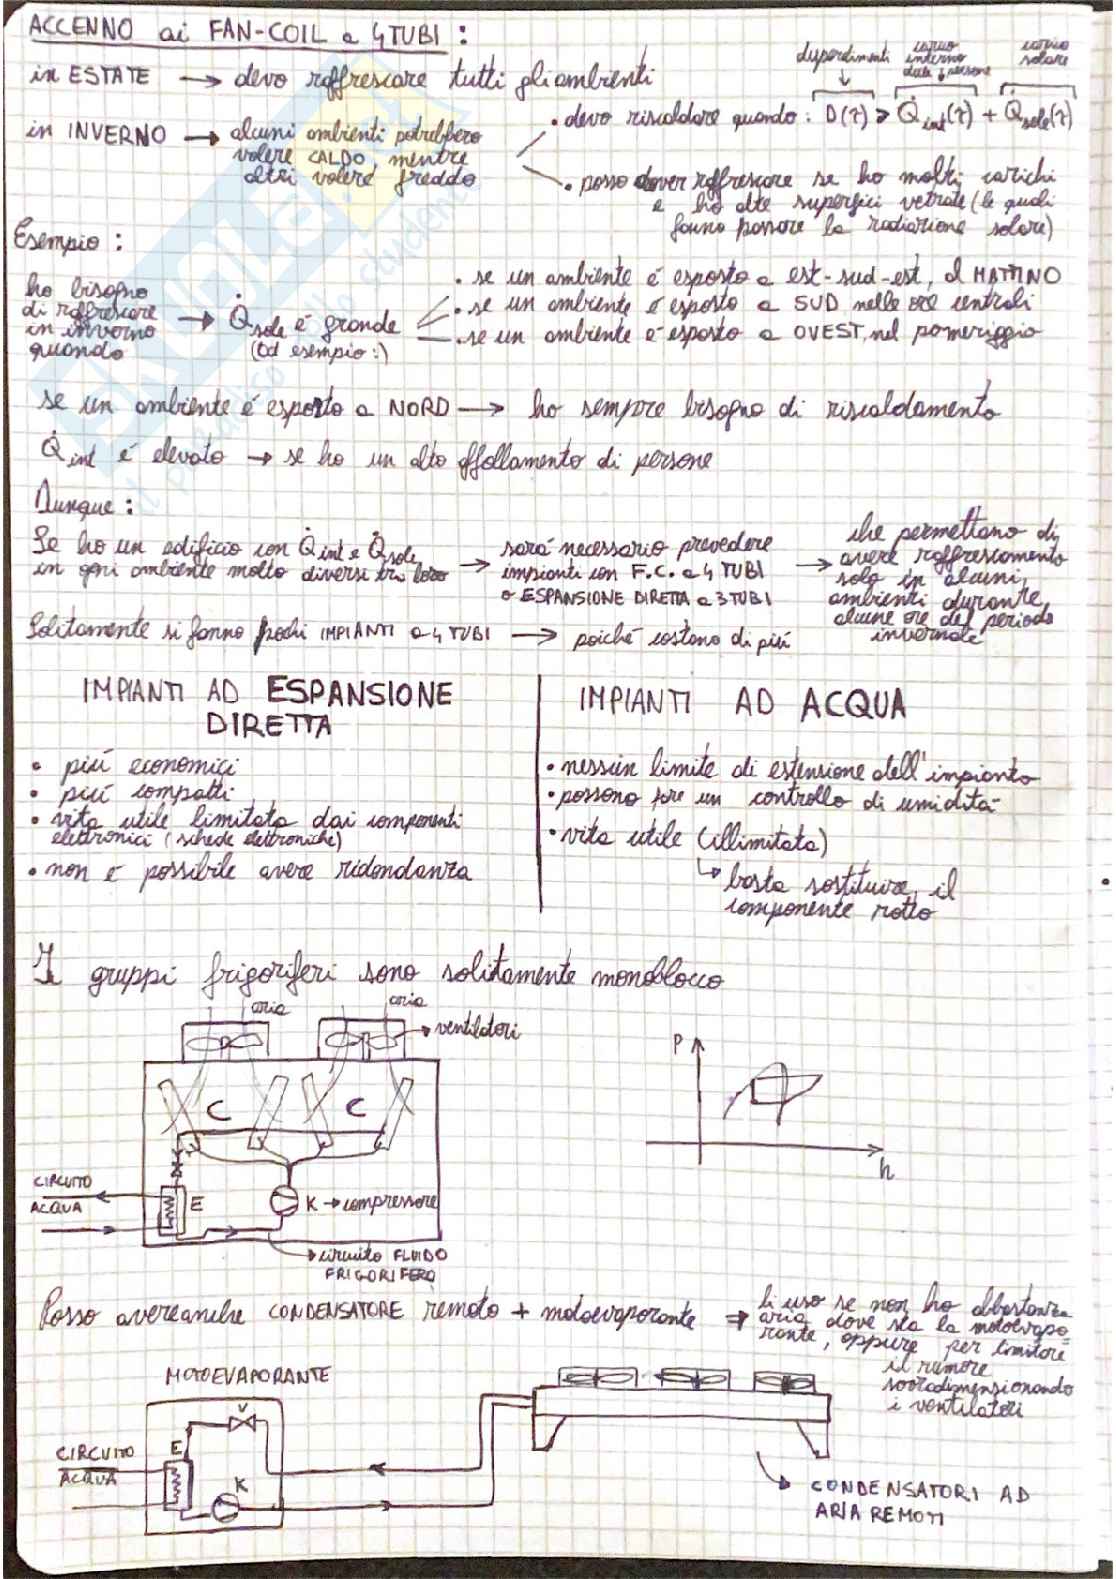 ACCENNO ai FAN-COIL a 4 TUBI :
in ESTATE → devo raffrescare tutti gli ambienti
in INVERNO → alcuni ambienti potrebbero
volere CALDO, mentre
altri volere freddo
dispendimenti
carico
interno
carico
solare
• devo riscaldare quando : D(τ) > Q̇int(τ) + Q̇sole(τ)
• posso dover raffrescare se ho molti carichi
e ho alte superfici vetrate (le quali
fanno passare la radiazione solare)
Esempio :
ho bisogno
di raffrescare
in inverno
quando
→ Q̇sole é grande
(ad esempio :)
• se un ambiente é esposto a est-sud-est, al MATTINO
• se un ambiente é esposto a SUD nelle ore centrali
• se un ambiente é esposto a OVEST, nel pomeriggio
se un ambiente é esposto a NORD → ho sempre bisogno di riscaldamento
Q̇int é elevato → se ho un alto affollamento di persone
Dunque :
Se ho un edificio con Q̇int e Q̇sole
in ogni ambiente molto diversi tra loro
→ sará necessario prevedere
impianti con F.C. a 4 TUBI
o ESPANSIONE DIRETTA a 3 TUBI
→ che permettano di
avere raffrescamento
solo in alcuni
ambienti durante
alcune ore del periodo
invernale
Solitamente si fanno pochi IMPIANTI a 4 TUBI → poiché costano di piú
IMPIANTI AD ESPANSIONE
DIRETTA
• piú economici
• piú compatti
• vita utile limitata dai componenti
elettronici (schede elettroniche)
• non é possibile avere ridondanza
IMPIANTI AD ACQUA
• nessun limite di estensione dell'impianto
• possono fare un controllo di umiditá
• vita utile (illimitata)
↳ basta sostituire il
componente rotto
I gruppi frigoriferi sono solitamente monoblocco
aria
aria
→ ventilatori
C
C
CIRCUITO
ACQUA
E
K → compressore
→ circuito FLUIDO
FRIGORIFERO
P
h
Posso avere anche CONDENSATORE remoto + motoevaporante ⇒ li uso se non ho abbastanza
aria dove sta la motoevapo-
rante, oppure per limitare
il rumore
sovradimensionando
i ventilatori
MOTOEVAPORANTE
V
CIRCUITO
ACQUA
E
K
CONDENSATORI AD
ARIA REMOTI